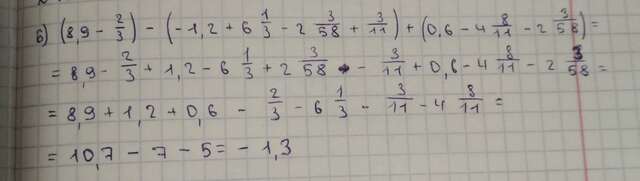 б) (8,9 - 2/3) - (-1,2 + 6 1/3 - 2 3/58 + 3/11) + (0,6 - 4 8/11 - 2 3/58) =
= 8,9 - 2/3 + 1,2 - 6 1/3 + 2 3/58 - 3/11 + 0,6 - 4 8/11 - 2 3/58 =
= 8,9 + 1,2 + 0,6 - 2/3 - 6 1/3 - 3/11 - 4 8/11 =
= 10,7 - 7 - 5 = - 1,3